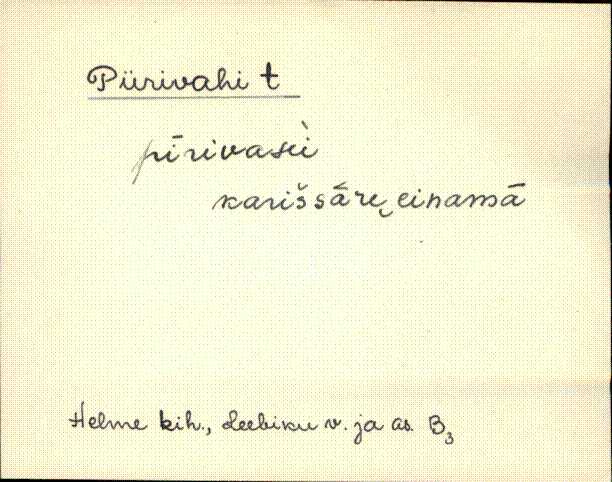 Piirivahi t
pīrivasìi
karišsāre, einamā
Helme kih., Leebiku v. ja as. B3